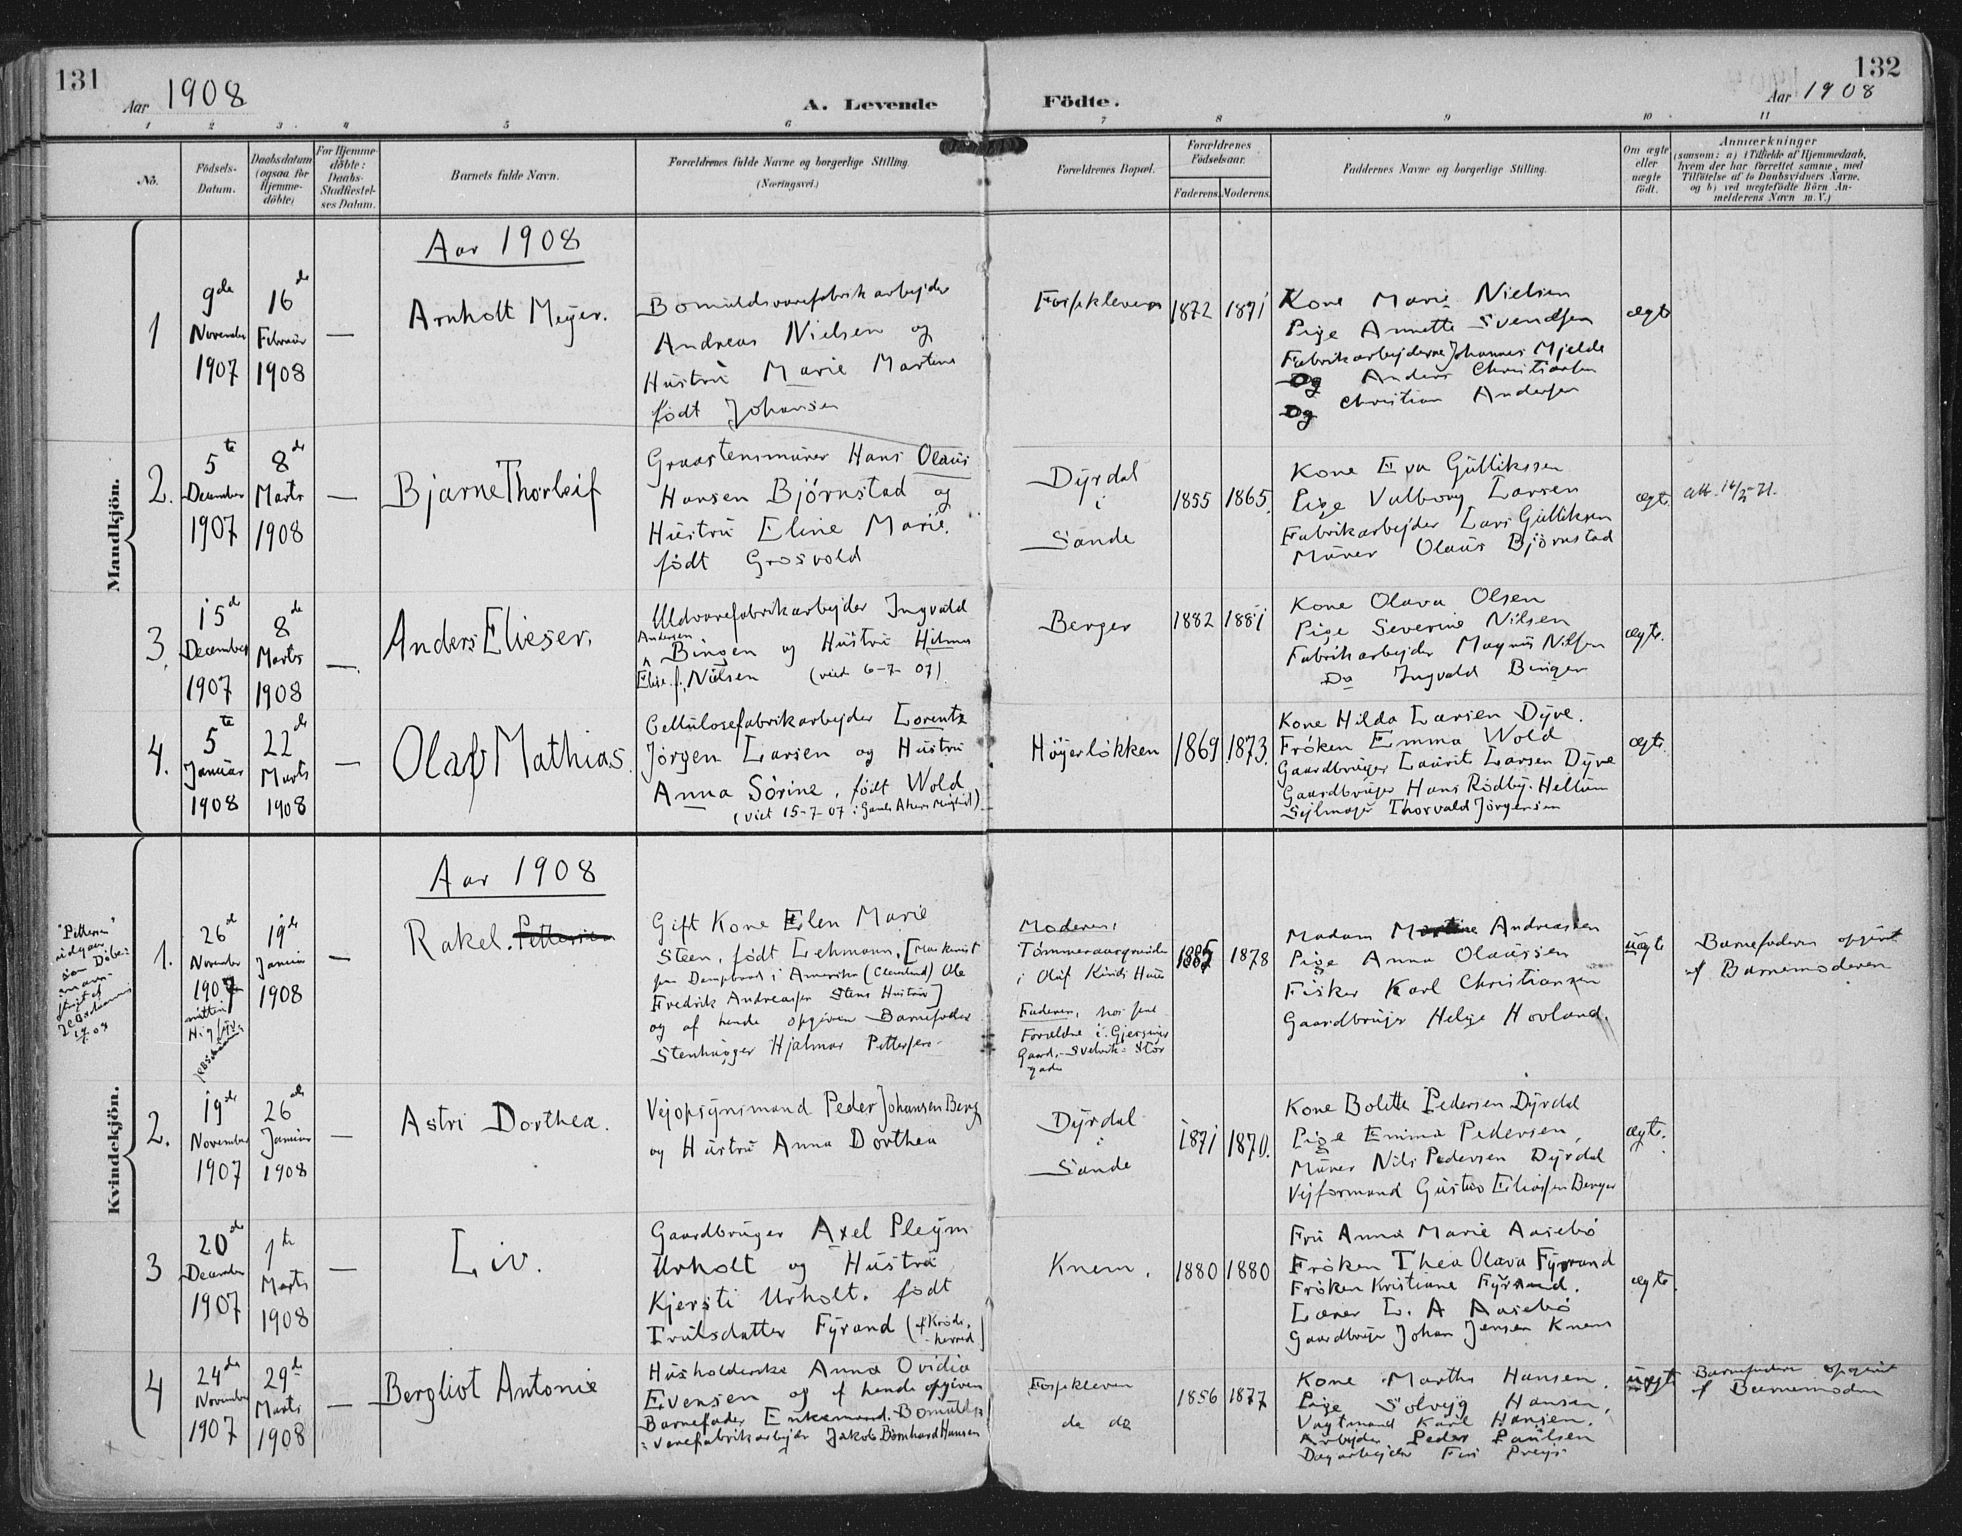 131
Aar 1908
A. Levende
Födte.
132
Aar 1908
1 2 3 4 5 6 7 8 9 10 11
No.
Födsels-
Datum.
Daabsdatum
(ogsaa for
Hjemme-
döbte)
For Hjemme-
döbte:
Daabs-
Stadfæstel-
ses Datum.
Barnets fulde Navn.
Forældrenes fulde Navne og borgerlige Stilling.
(Næringsvei.)
Forældrenes Bopæl.
Forældrenes
Födselsaar.
Faderens. Moderens.
Faddernes Navne og borgerlige Stilling.
Om ægte
eller
uægte
födt.
Anmærkninger
(saasom: a) i Tilfælde af Hjemmedaab,
hvem der har forrettet samme, med
Tilföielse af to Daabsvidners Navne,
og b) ved uægtefödte Börn An-
melderens Navn m. V.)
Mandkjön.
Aar 1908
1
9de
November
1907
16de
Februar
1908
—
Arnholt Meyer.
Bomuldsvarefabrikarbejder
Andreas Nielsen og
Hustru Marie Martens
født Johansen
Fossekleven
1872
1871
Kone Marie Nielsen
Pige Annette Svendsen
Fabrikarbejderne Johannes Mjelde
Og Anders Christiansen
Og Christian Andersen
ægte
2.
5te
December
1907
8de
Marts
1908
—
Bjarne Thorleif
Graastensmurer Hans Olaus
Hansen Bjørnstad og
Hustru Eline Marie.
født Grosvold
Dyrdal
i
Sande
1855
1865.
Kone Eva Gulliksen
Pige Valborg Larsen
Fabrikarbejder Lars Gulliksen
Murer Olaus Bjørnstad
ægte
3.
15de
December
1907
8de
Marts
1908
—
Anders Elieser.
Uldvarefabrikarbejder Ingvald
Andersen
Bingen og Hustru Hilma
Elise f. Nilsen (viet 6-7-07)
Berger
1882
1881
Kone Olava Olsen
Pige Severine Nilsen
Fabrikarbejder Magnus Nilsen
Do Ingvald Bingen
ægte.
4.
5te
Januar
1908
22de
Marts
1908
—
Olaf Mathias.
Cellulosefabrikarbejder Lorentz
Jørgen Larsen og Hustru
Anna Sørine, født Wold
(viet 15-7-07 i Gamle Akers Menighed)
Høyerløkken
1869
1873.
Kone Hilda Larsen Dyve.
Frøken Emma Wold
Gaardbruger Laurits Larsen Dyve
Gaardbruger Hans Rødby. Hellum
Sejlmager Thorvald Jørgensen
ægte
Kvindekjön.
Aar 1908
"Pettersen"
udgaar
som Døbe-
navn
1.
26de
November
1907
19de
Januar
1908
—
Rakel. Pettersen
Gift Kone Elen Marie
Steen, født Lehmann, [Maskinist
paa Dampbaad i Amerika (Cleveland) Ole
Fredrik Andreassen Stens Hustru]
og af hende opgiven Barnefader
Stenhugger Hjalmar Pettersen
Moderen:
i Olaf Hus
Faderen, hos sine
Forældre i Gjerpings
Gaard, Svelvik: Stor
gade
1885
1878
Madam Andreassen
Pige Anna Olaussen
Fisker Karl Christiansen
Gaardbruger Helge Hovland.
uægte
Barnefaderen opgivet
af Barnemoderen
2.
19de
November
1907
26de
Januar
1908
—
Astri Dorthea.
Vejopsynsmand Peder Johansen Berg
og Hustru Anna Dorthea
Dyrdal
i
Sande
1871
1870.
Kone Bolette Pedersen Dyrdal
Pige Emma Pedersen,
Murer Nils Pedersen Dyrdal
Vejformand Gustav Eliassen Berger
ægte.
3
20de
December
1907
1ste
Marts
1908
—
Liv.
Gaardbruger Axel Pleym
Urholt og Hustru
Kjersti Urholt. født
Truls datter Fyrand (af Krøds-
herred)
Knem.
1880
1880
Fru Anna Marie Aasebø
Frøken Thea Olava Fyrand
Frøken Kristiane Fyrand.
Lærer L. A Aasebø
Gaardbruger Johan Jensen Knem
ægte.
4
24de
November
1907
29de
Marts
1908
—
Bergliot Antonie
Husholderske Anna Ovidia
Evensen og af hende opgiven
Barnefader Enkemand. Bomulds-
varefabrikarbejder Jakob Bernhard Hansen
Fossekleven
do do
1856
1877
Kone Marthe Hansen.
Pige Solveig Hansen,
Vagtmand Karl Hansen.
Arbejder Peder Paulsen
Dagarbejder
uægte
Barnefaderen opgivet
af Barnemoderen